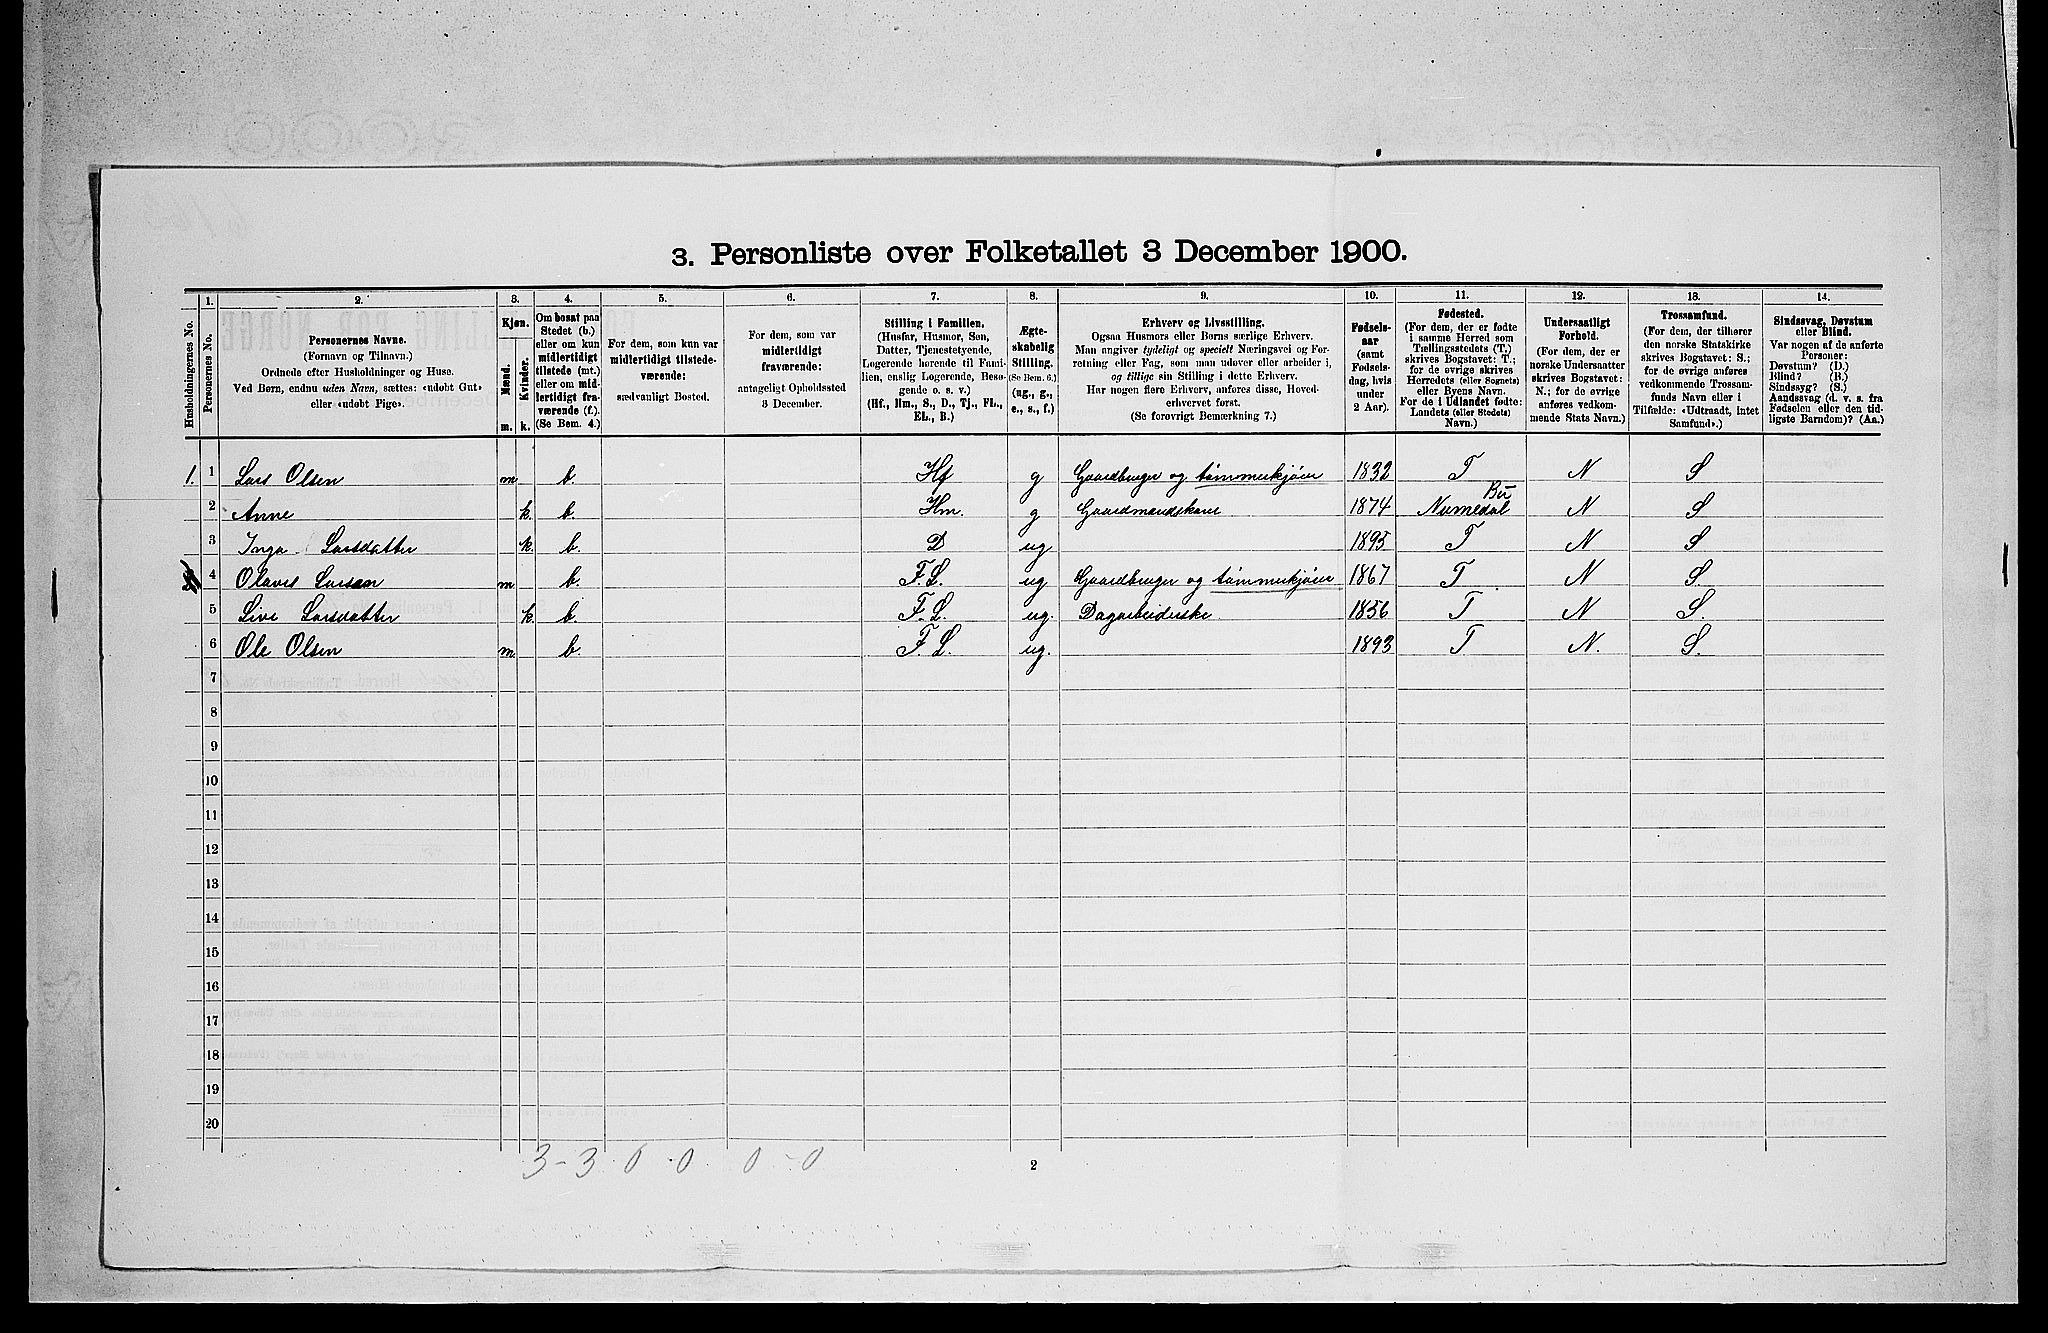 3. Personliste over Folketallet 3 December 1900.
Husholdningernes No.
1.
Personernes No.
2.
Personernes Navne.
(Fornavn og Tilnavn.)
Ordnede efter Husholdninger og Huse.
Ved Børn, endnu uden Navn, sættes: «udobt Gut»
eller «udobt Pige».
3.
Kjøn.
Mænd.
Kvinder.
m. k.
4.
Om bosat paa
Stedet (b.)
eller om kun
midlertidigt
tilstede (mt.)
eller om mid-
lertidigt fra-
værende (f.).
(Se Bem. 4.)
5.
For dem, som kun var
midlertidigt tilstede-
værende:
sædvanligt Bosted.
6.
For dem, som var
midlertidigt
fraværende:
antageligt Opholdssted
3 December.
7.
Stilling i Familien.
(Husfar, Husmor, Søn,
Datter, Tjenestetyende,
Logerende hørende til Fami-
lien, enslig Logerende, Besø-
gende o. s. v.)
(Hf., Hm., S., D., Tj., FL.,
EL., B.)
8.
Ægte-
skabelig
Stilling.
(Se Bem. 6.)
(ug., g.,
e., s., f.)
9.
Erhverv og Livsstilling.
Ogsaa Husmors eller Børns særlige Erhverv.
Man angiver tydeligt og specielt Næringsvei og For-
retning eller Fag, som man udøver eller arbeider i,
og tillige sin Stilling i dette Erhverv.
Har nogen flere Erhverv, anføres disse, Hoved-
erhvervet først.
(Se forøvrigt Bemærkning 7.)
10.
Fødsels-
aar
(samt
Fødsels-
dag, hvis
under
2 Aar).
11.
Fødested.
(For dem, der er fødte
i samme Herred som
Tællingsstedets (T.)
skrives Bogstavet: T.;
for de øvrige skrives
Herredets (eller Sognets)
eller Byens Navn.
For de i Udlandet fødte:
Landets (eller Stedets)
Navn.)
12.
Undersaatligt
Forhold.
(For dem, der er
norske Undersaatter
skrives Bogstavet:
N.; for de øvrige
anføres vedkom-
mende Stats Navn.)
13.
Trossamfund.
(For dem, der tilhører
den norske Statskirke
skrives Bogstavet: S.;
for de øvrige anføres
vedkommende Trossam-
funds Navn eller i
Tilfælde: «Udtraadt, intet
Samfund».)
14.
Sindssvag, Døvstum
eller Blind.
Var nogen af de anførte
Personer:
Døvstum? (D.)
Blind? (B.)
Sindssyg? (S.)
Aandssvag (d. v. s. fra
Fødselen eller den tid-
ligste Barndom)? (Aa.)
1. 1 Lars Olsen m b. Hf g Gaardbruger og tømmerkjører 1832 T N S
2 Anne k. b. Hm. g Gaardmandskone 1874 Numedal N S
3 Inga Larsdatter k. b. D ug 1895 T N S
4 Olaves Larsen m b. F.L. ug Gaardbruger og tømmerkjører 1867 T N S.
5 Live Larsdatter k. b. F.L. ug. Dagarbeiderske 1856 T N S.
6 Ole Olsen m b. F.L. ug. 1893 T N. S.
7
8
9
10
11
12
13
14
15
16
17
18
19
20
3-3 0-0 0-0
2